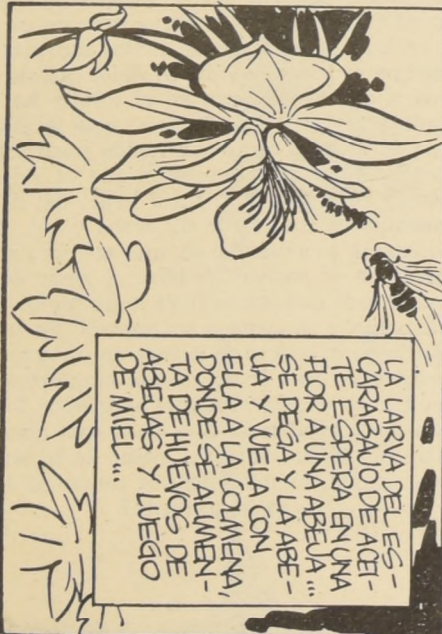 LA LARVA DEL ES-
CARABAJO DE ACEI-
TE ESPERA EN UNA
FLOR A UNA ABEJA...
SE PEGA Y LA ABE-
JA Y VUELA CON
ELLA A LA COLMENA,
DONDE SE ALIMEN-
TA DE HUEVOS DE
ABEJAS Y LUEGO
DE MIEL...